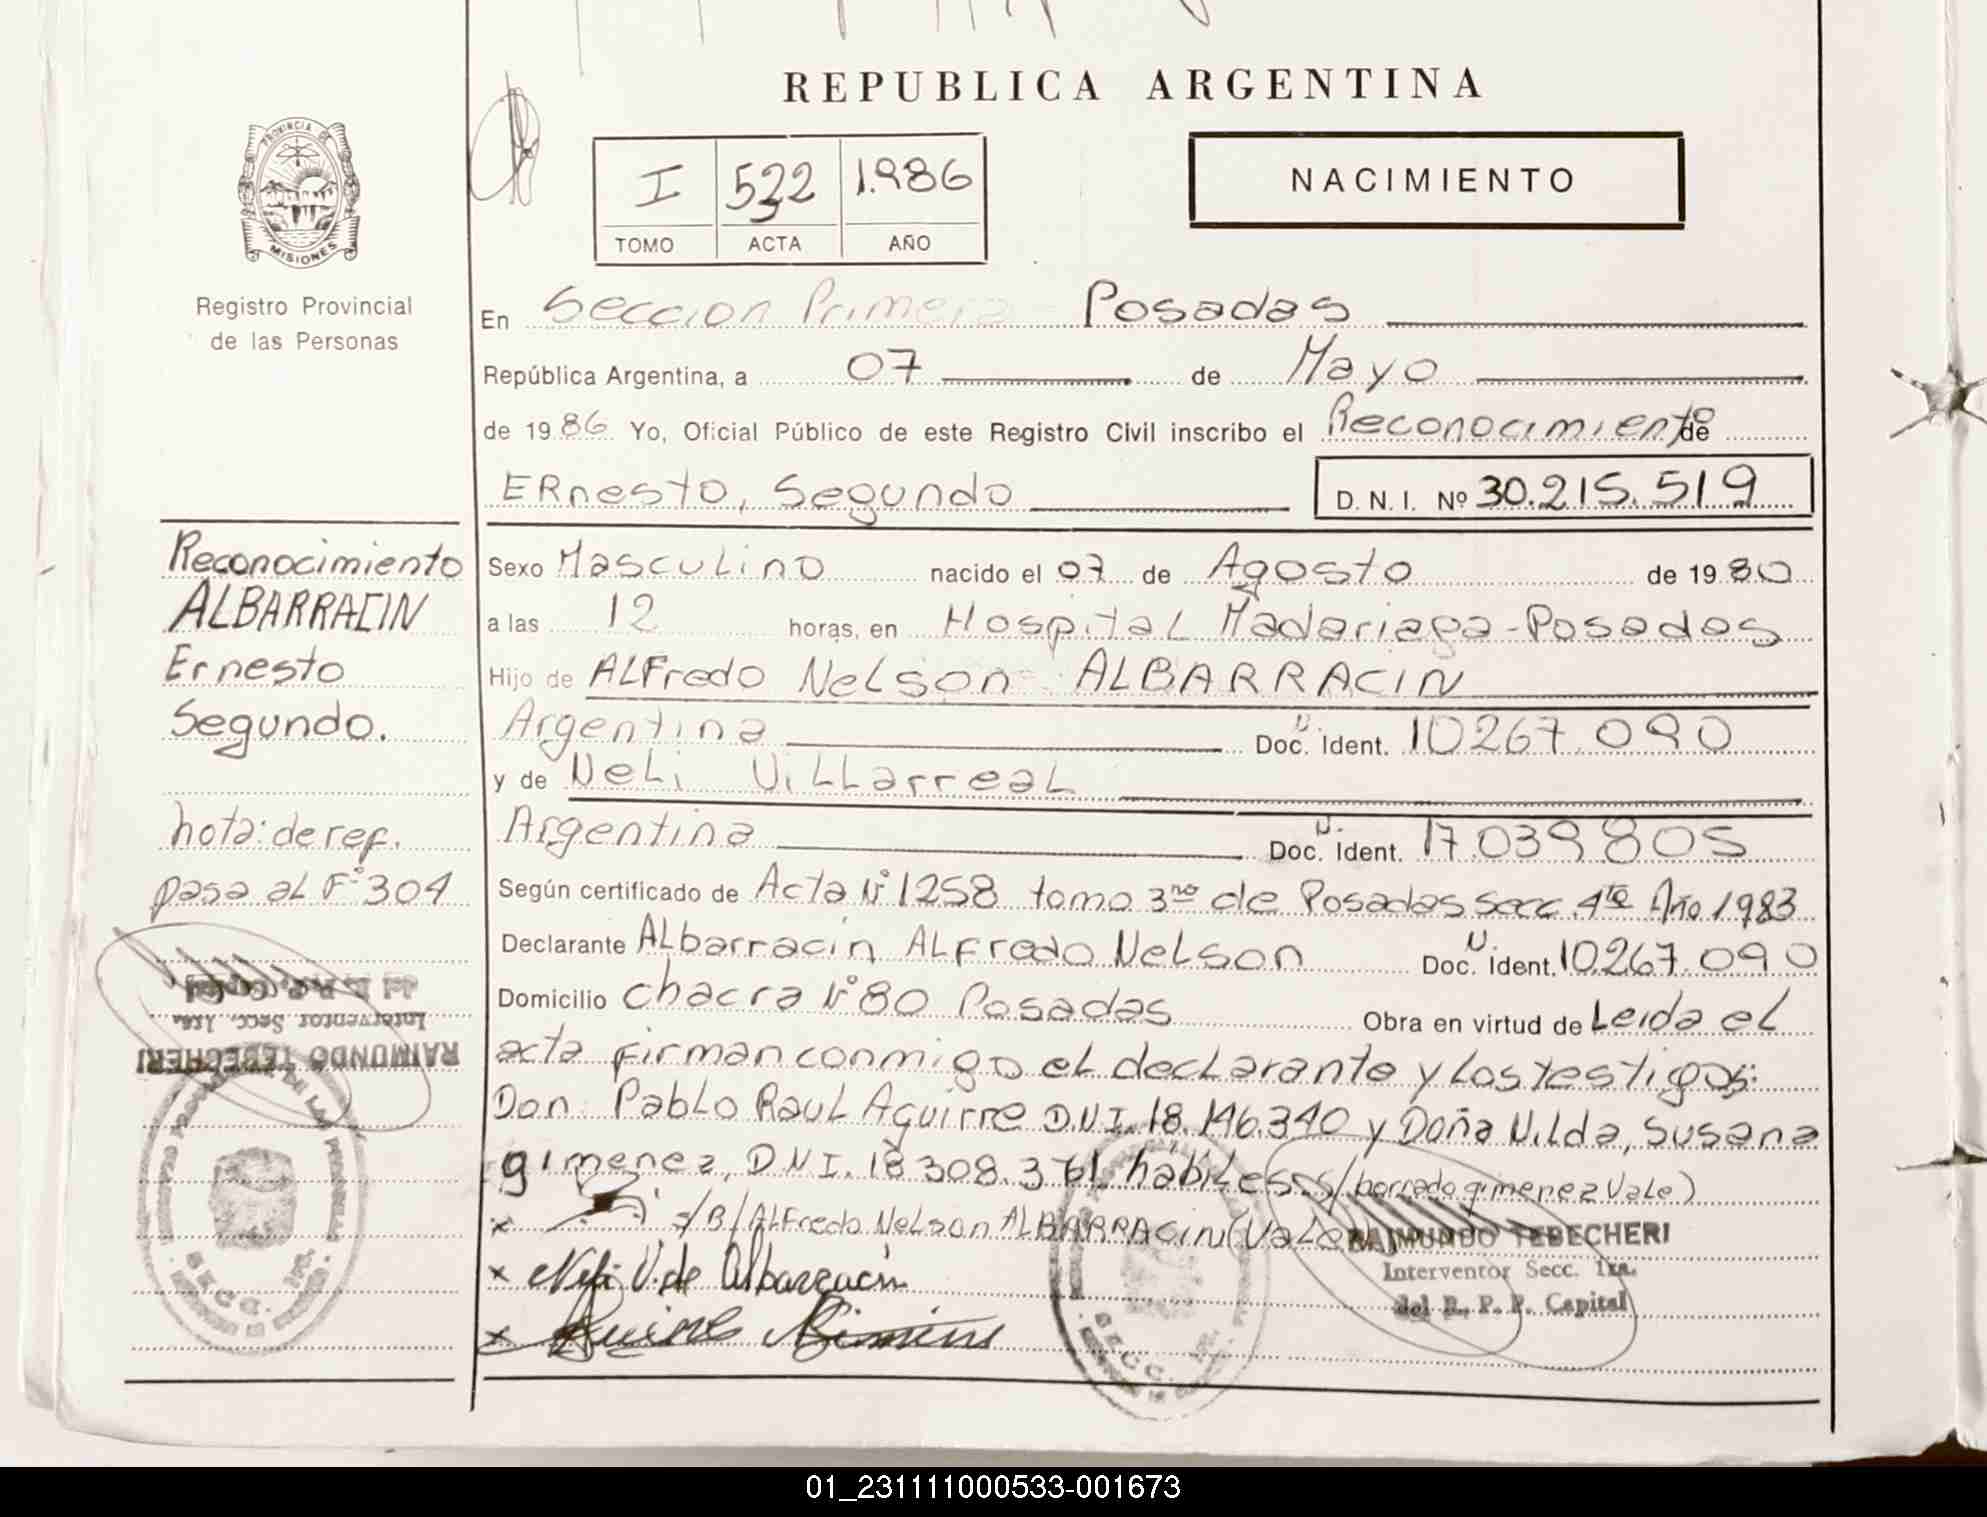 REPUBLICA ARGENTINA
PROVINCIA DE
MISIONES
Registro Provincial
de las Personas
I 532 1.986
TOMO ACTA AÑO
NACIMIENTO
En Seccion Primera Posadas
República Argentina, a 07 de Mayo
de 1986 Yo, Oficial Público de este Registro Civil inscribo el Reconocimiento de
ERnesto, Segundo D. N. I. Nº 30.215.519
Reconocimiento
ALBARRACIN
Ernesto
Segundo.
nota: de ref.
pasa al Fº 304
Sexo Masculino nacido el 07 de Agosto de 1980
a las 12 horas, en Hospital Madariaga-Posadas
Hijo de ALFredo Nelson ALBARRACIN
Argentina Doc. N. Ident. 10267.090
y de Neli Villarreal
Argentina Doc. N. Ident. 17.039805
Según certificado de Acta Nº 1258 tomo 3ro de Posadas Secc. 4ta Año 1983
Declarante ALbarracin ALFredo Nelson Doc. N. Ident. 10.267.090
Domicilio Chacra Nº 80 Posadas Obra en virtud de Leida el
acta firman conmigo el declarante y Los testigos:
Don Pablo Raul Aguirre D.N.I. 18.146.340 y Doña Nilda, Susana
gimenez, D.N.I. 18308.361, hábiles. s/borrado gimenez Vale)
x s/B/ALFredo Nelson ALBARRACIN (Vale)
x Neli V. de Albarracin
x
RAIMUNDO TEBECHERI
Interventor Secc. 1ra.
del R. P. P. Capital
RAIMUNDO TEBECHERI
Interventor Secc. 1ra.
01_231111000533-001673